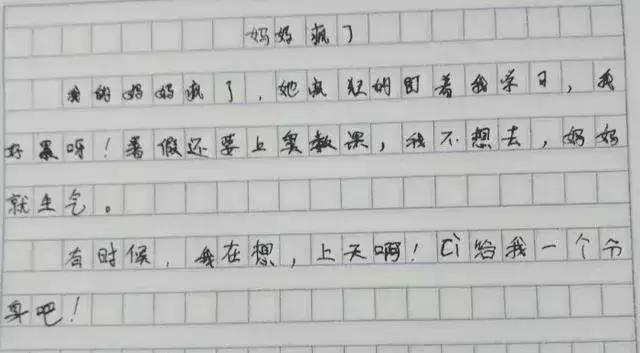 妈妈疯了
我的妈妈疯了，她疯狂的盯着我学习，我
好累呀！暑假还要上奥数课，我不想去，妈妈
就生气。
有时候，我在想，上天啊！Cì给我一个分
身吧！